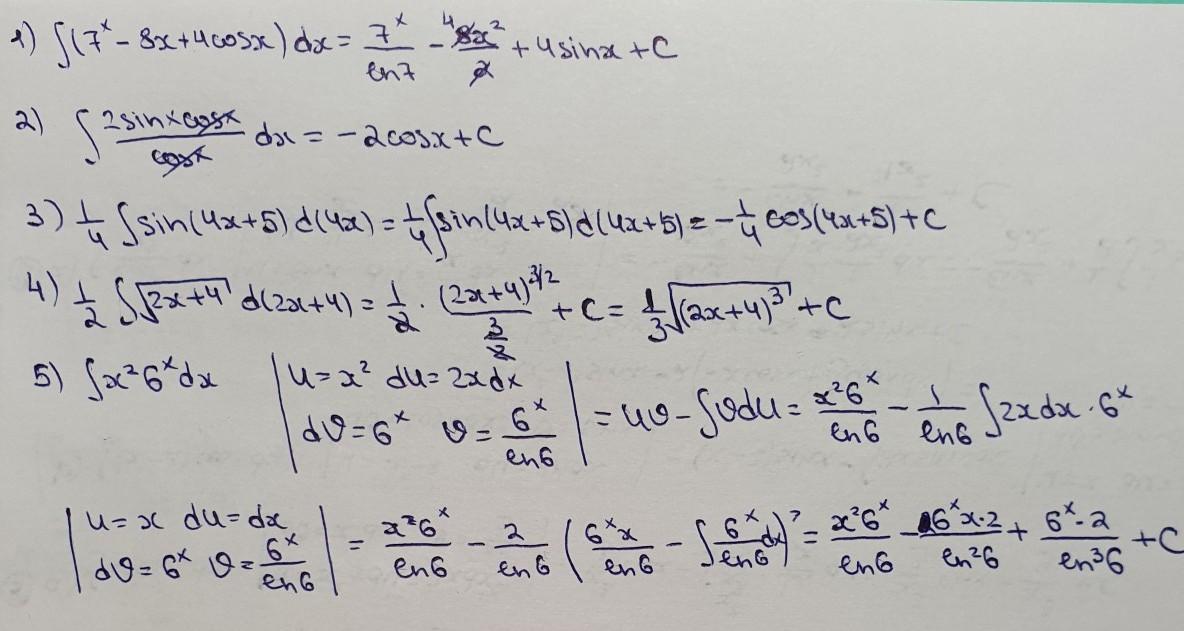 1) ∫(7ˣ - 8x + 4cosx) dx = 7ˣ/ln7 - 8x²/2 + 4sinx + C
2) ∫ 2sinxcosx/cosx dx = -2cosx + C
3) 1/4 ∫sin(4x+5) d(4x) = 1/4 ∫sin(4x+5) d(4x+5) = -1/4 cos(4x+5) + C
4) 1/2 ∫√(2x+4) d(2x+4) = 1/2 · (2x+4)^(3/2)/(3/2) + C = 1/3 √((2x+4)³) + C
5) ∫x²6ˣdx | u = x² du = 2xdx dϑ = 6ˣ ϑ = 6ˣ/ln6 | = uϑ - ∫ϑdu = x²6ˣ/ln6 - 1/ln6 ∫2xdx · 6ˣ
| u = x du = dx dϑ = 6ˣ ϑ = 6ˣ/ln6 | = x²6ˣ/ln6 - 2/ln6 (6ˣx/ln6 - ∫6ˣ/ln6 dx) = x²6ˣ/ln6 - 6ˣx·2/ln²6 + 6ˣ·2/ln³6 + C